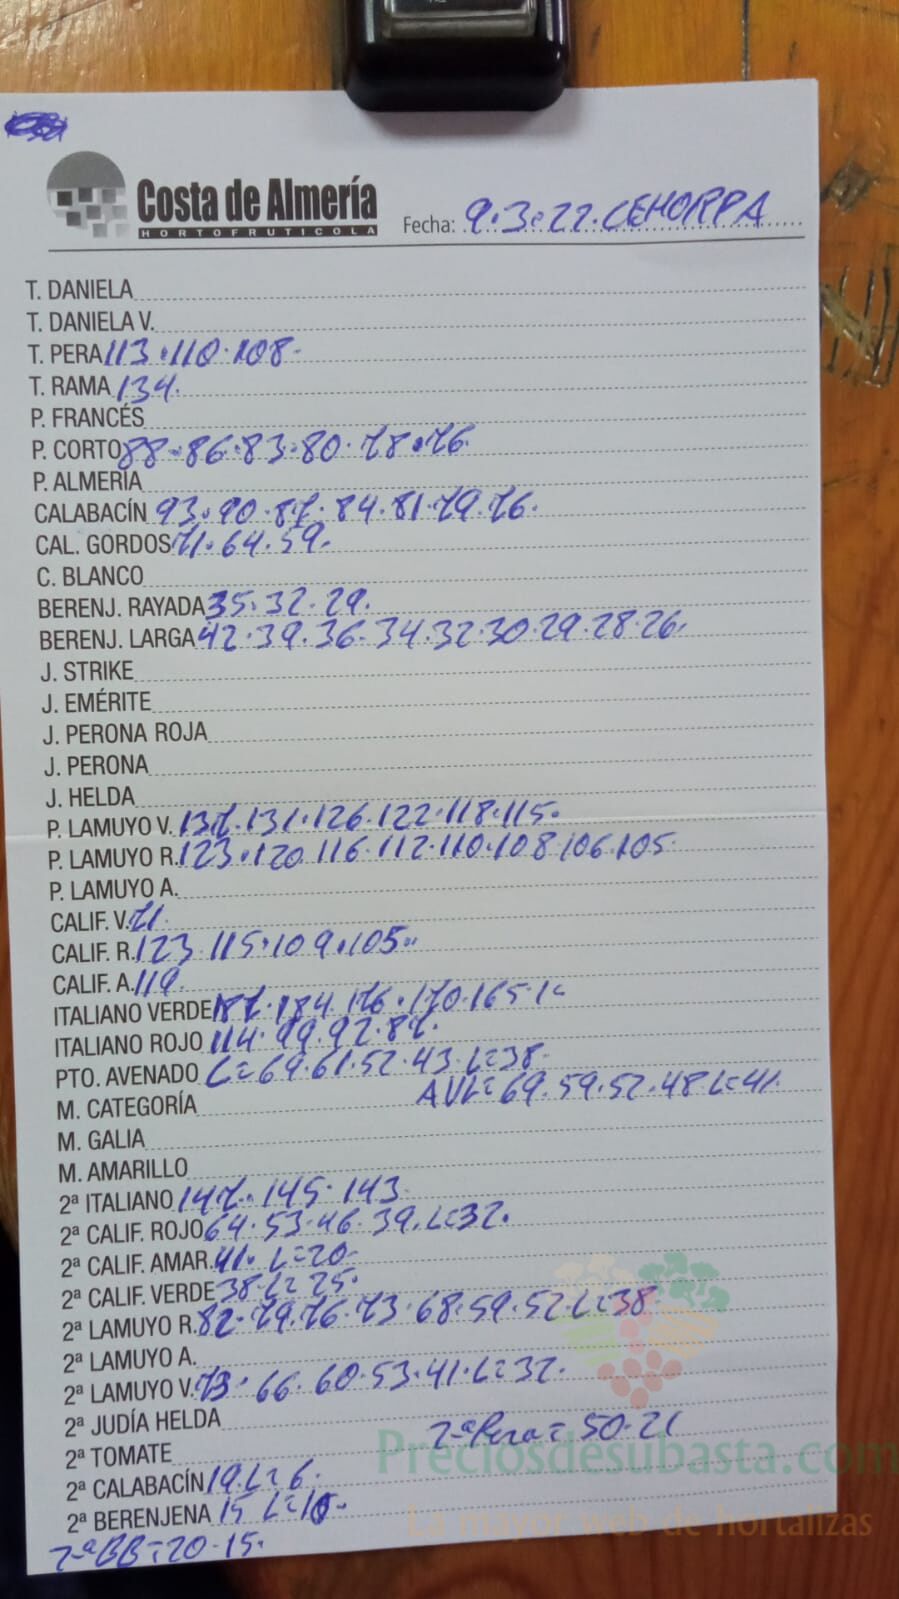 Costa de Almería
HORTOFRUTICOLA
Fecha: 9.3.22.CEHORPA
T. DANIELA
T. DANIELA V.
T. PERA 113.110.108.
T. RAMA 134.
P. FRANCÉS
P. CORTO 88.86.83.80.78.76
P. ALMERÍA
CALABACÍN 93.90.87.84.81.79.76.
CAL. GORDOS 71.64.59.
C. BLANCO
BERENJ. RAYADA 35.32.29.
BERENJ. LARGA 42.39.36.34.32.30.29.28.26.
J. STRIKE
J. EMÉRITE
J. PERONA ROJA
J. PERONA
J. HELDA
P. LAMUYO V. 137.131.126.122.118.115.
P. LAMUYO R. 123.120.116.112.110.108.106.105.
P. LAMUYO A.
CALIF. V. 71.
CALIF. R. 123.115.109.105..
CALIF. A. 119.
ITALIANO VERDE 187.184.176.170.165.
ITALIANO ROJO 114.99.92.87.
PTO. AVENADO L=69.61.52.43.L=38.
AVL=69.59.52.48 L=41.
M. CATEGORÍA
M. GALIA
M. AMARILLO
2ª ITALIANO 147.145.143.
2ª CALIF. ROJO 64.53.46.39.L=32.
2ª CALIF. AMAR. 41. L=20.
2ª CALIF. VERDE 38.L=25.
2ª LAMUYO R. 82.79.76.73.68.59.52.L=38.
2ª LAMUYO A.
2ª LAMUYO V. 73.66.60.53.41.L=32.
2ª JUDÍA HELDA
2ªPera=50.21
2ª TOMATE
2ª CALABACÍN 19.L=6.
2ª BERENJENA 15 L=10.
2ªBB=20.15.
Preciosdesubasta.com
La mayor web de hortalizas